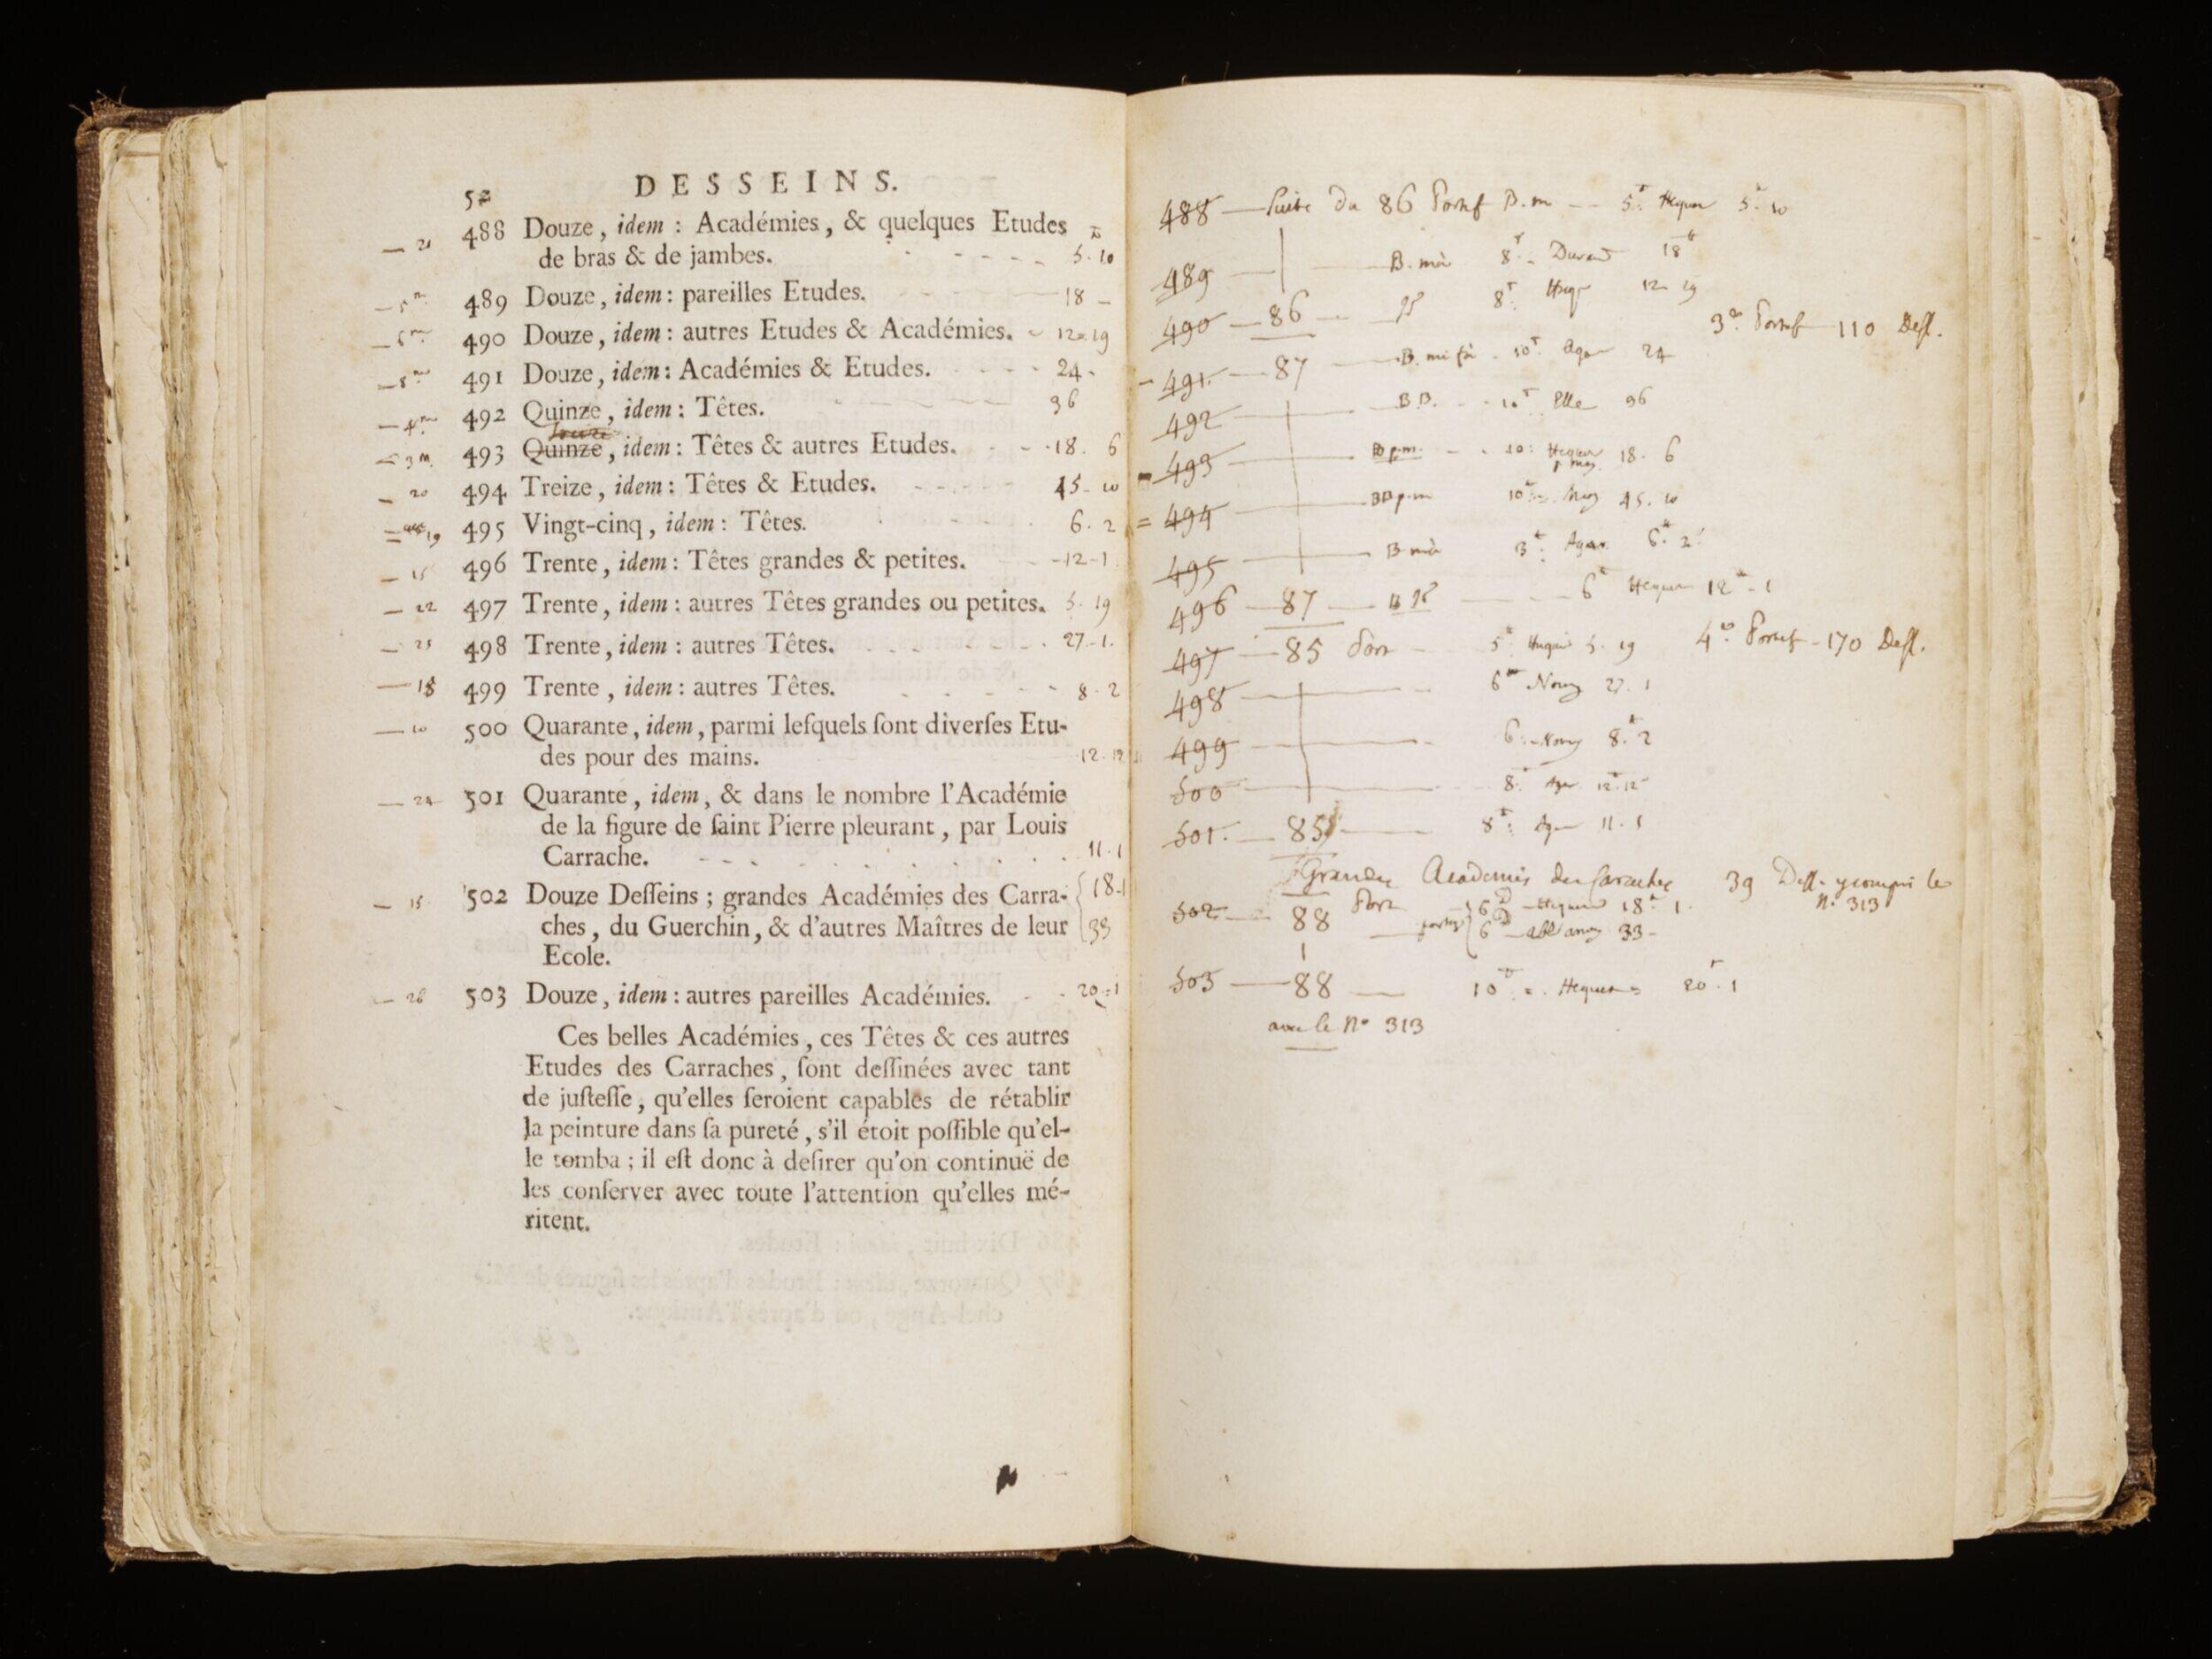 52 DESSEINS.
— 21 488 Douze, idem : Académies, & quelques Etudes
de bras & de jambes. 5.10
489 Douze, idem : pareilles Etudes. 18 -
490 Douze, idem : autres Etudes & Académies. 12.19
491 Douze, idem : Académies & Etudes. 24-
492 Quinze, idem : Têtes. 36
493 Quinze, idem : Têtes & autres Etudes. 18. 6
— 20 494 Treize, idem : Têtes & Etudes. 45-10
19 495 Vingt-cinq, idem : Têtes. 6.2
— 15 496 Trente, idem : Têtes grandes & petites. 12-1
— 22 497 Trente, idem : autres Têtes grandes ou petites. 5.19
— 25 498 Trente, idem : autres Têtes. 27-1.
— 18 499 Trente, idem : autres Têtes. 8.2
— 10 500 Quarante, idem, parmi leſquels ſont diverſes Etu-
des pour des mains. 12.12
— 24 501 Quarante, idem, & dans le nombre l'Académie
de la figure de ſaint Pierre pleurant, par Louis
Carrache. 11.1
— 15 502 Douze Deſſeins ; grandes Académies des Carra- 18-1
ches, du Guerchin, & d'autres Maîtres de leur 33
Ecole.
— 26 503 Douze, idem : autres pareilles Académies. 20-1
Ces belles Académies, ces Têtes & ces autres
Etudes des Carraches, ſont deſſinées avec tant
de juſteſſe, qu'elles ſeroient capables de rétablir
la peinture dans ſa pureté, s'il étoit poſſible qu'el-
le tomba ; il eſt donc à deſirer qu'on continuë de
les conſerver avec toute l'attention qu'elles mé-
ritent.
488 — Suite du 86 Portef B.m — 5 Hequer 5.10
489 — 8 Durand 18
490 — 86 — 8 12 19
3e Portef — 110 Deſſ.
491 — 87 — 10 24
492 — B.B. 10 Elle 36
493 — 10 Hequer 18. 6
494 — 10 45.10
495 — 3 Agar 6.2
496 — 87 — 6 Hequer 12-1
497 — 85 Port 5 5.19 4e Portef - 170 Deſſ.
498 — 6 27.1
499 — 6 8.2
500 — 8 12.12
501. — 85 — 8 11.1
Grandes Academies des Caraches 39 Deſſ. y compris le
N° 313
502 — 88 Port 6 Hequer 18.1
6 33-
503 — 88 — 10 Hequer 20.1
avec le N° 313